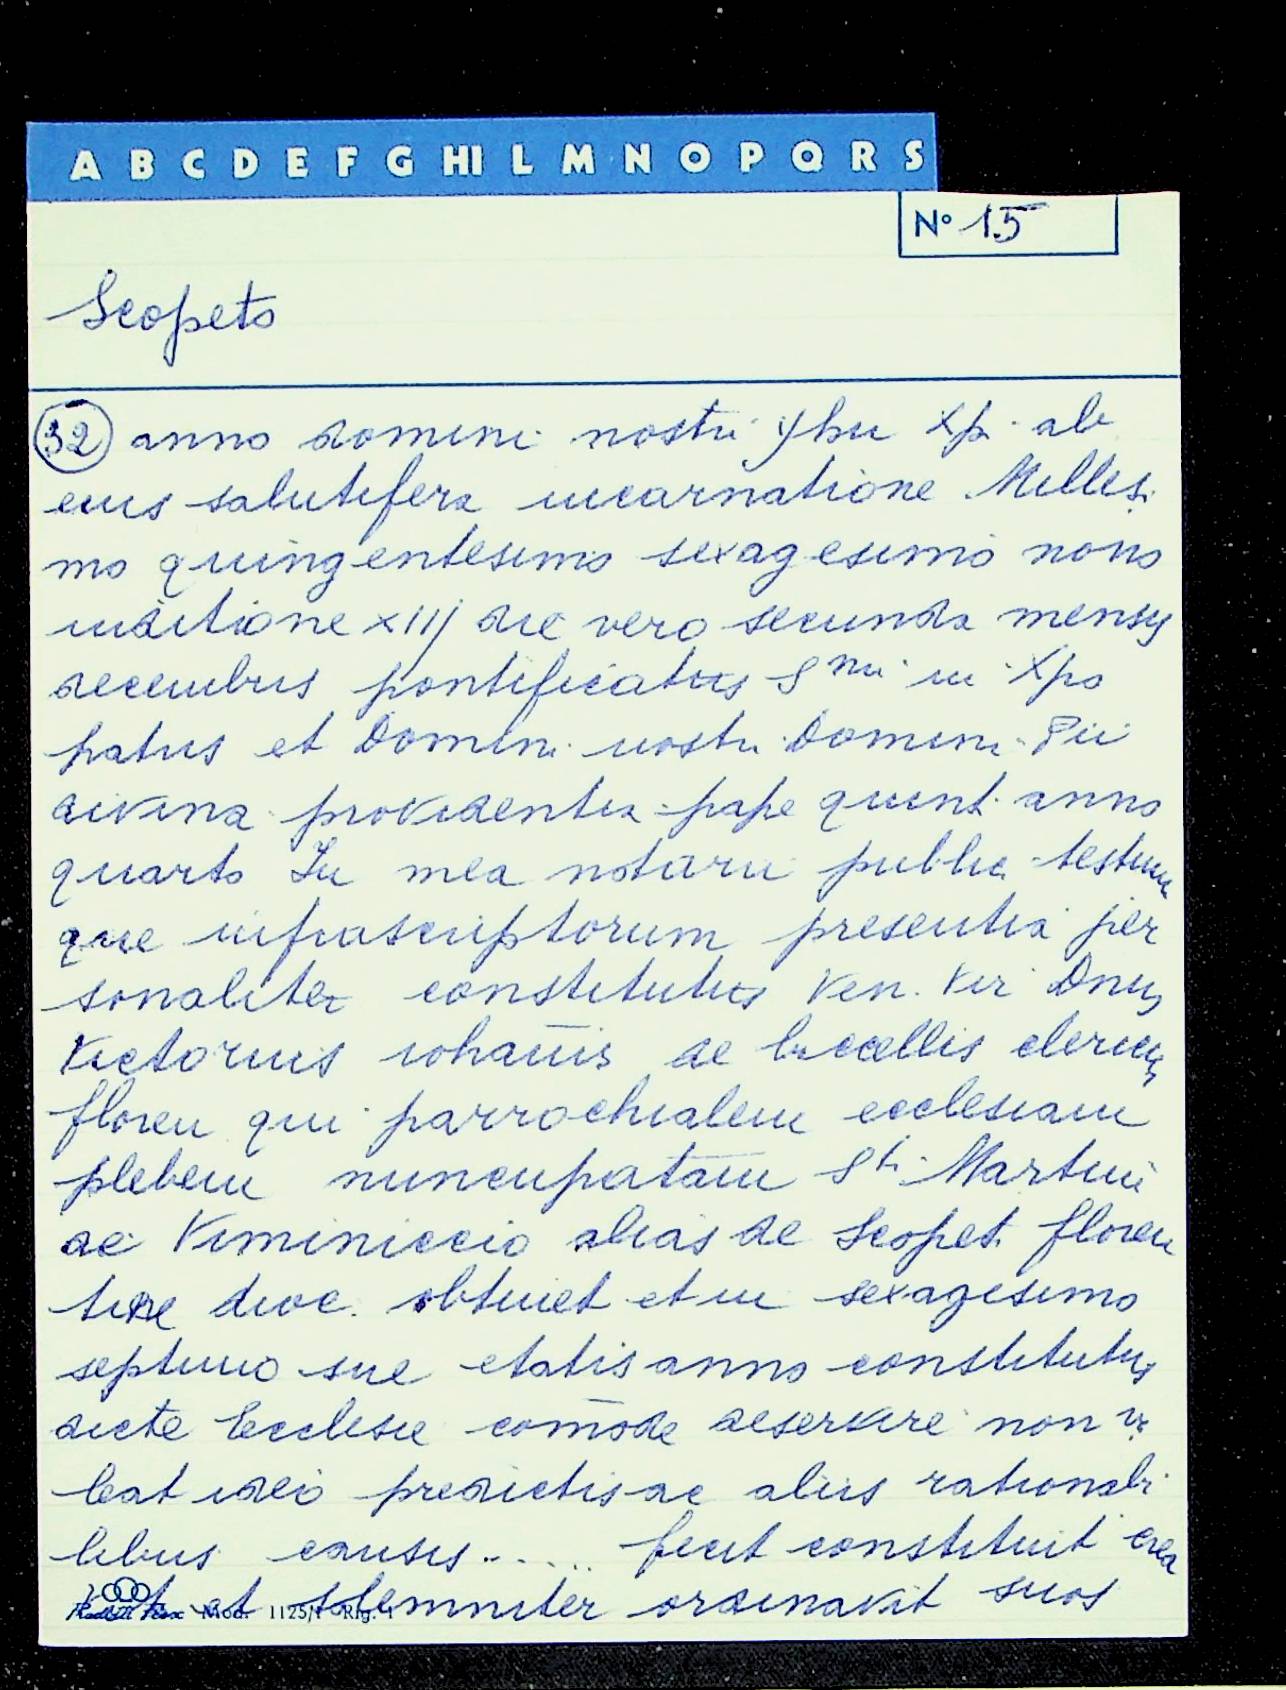 A B C D E F G HI L M N O P Q R S
N° 15
Scopeto
32 anno domini nostri yhu Xp. ab
eius salutifera incarnatione Milles.
mo quingentesimo sexagesimo nono
inditione XIIj die vero secunda mensis
decembris pontificatus Smi in Xpo
patris et Domini nostri Domini Pii
divina providentia pape quint. anno
quarto In mea notarii public. testium
que infrascriptorum presentia per
sonaliter constitutus Ven. Vir Dnus
Victorius iohanis de clericus
floren qui parrochialem ecclesiam
plebem nuncupatam Sti Martini
de Viminiccio alias de Scopet. floren
tine dioc. obtinet et in sexagesimo
septimo sue etatis anno constitutus
dicte Ecclesie comode deservire non va
leat ideo predictis ac aliis rationabi
libus causis ..... fecit constituit crea
vit et solemniter ordinavit suos
Mod. 1125/1 Rig. 1